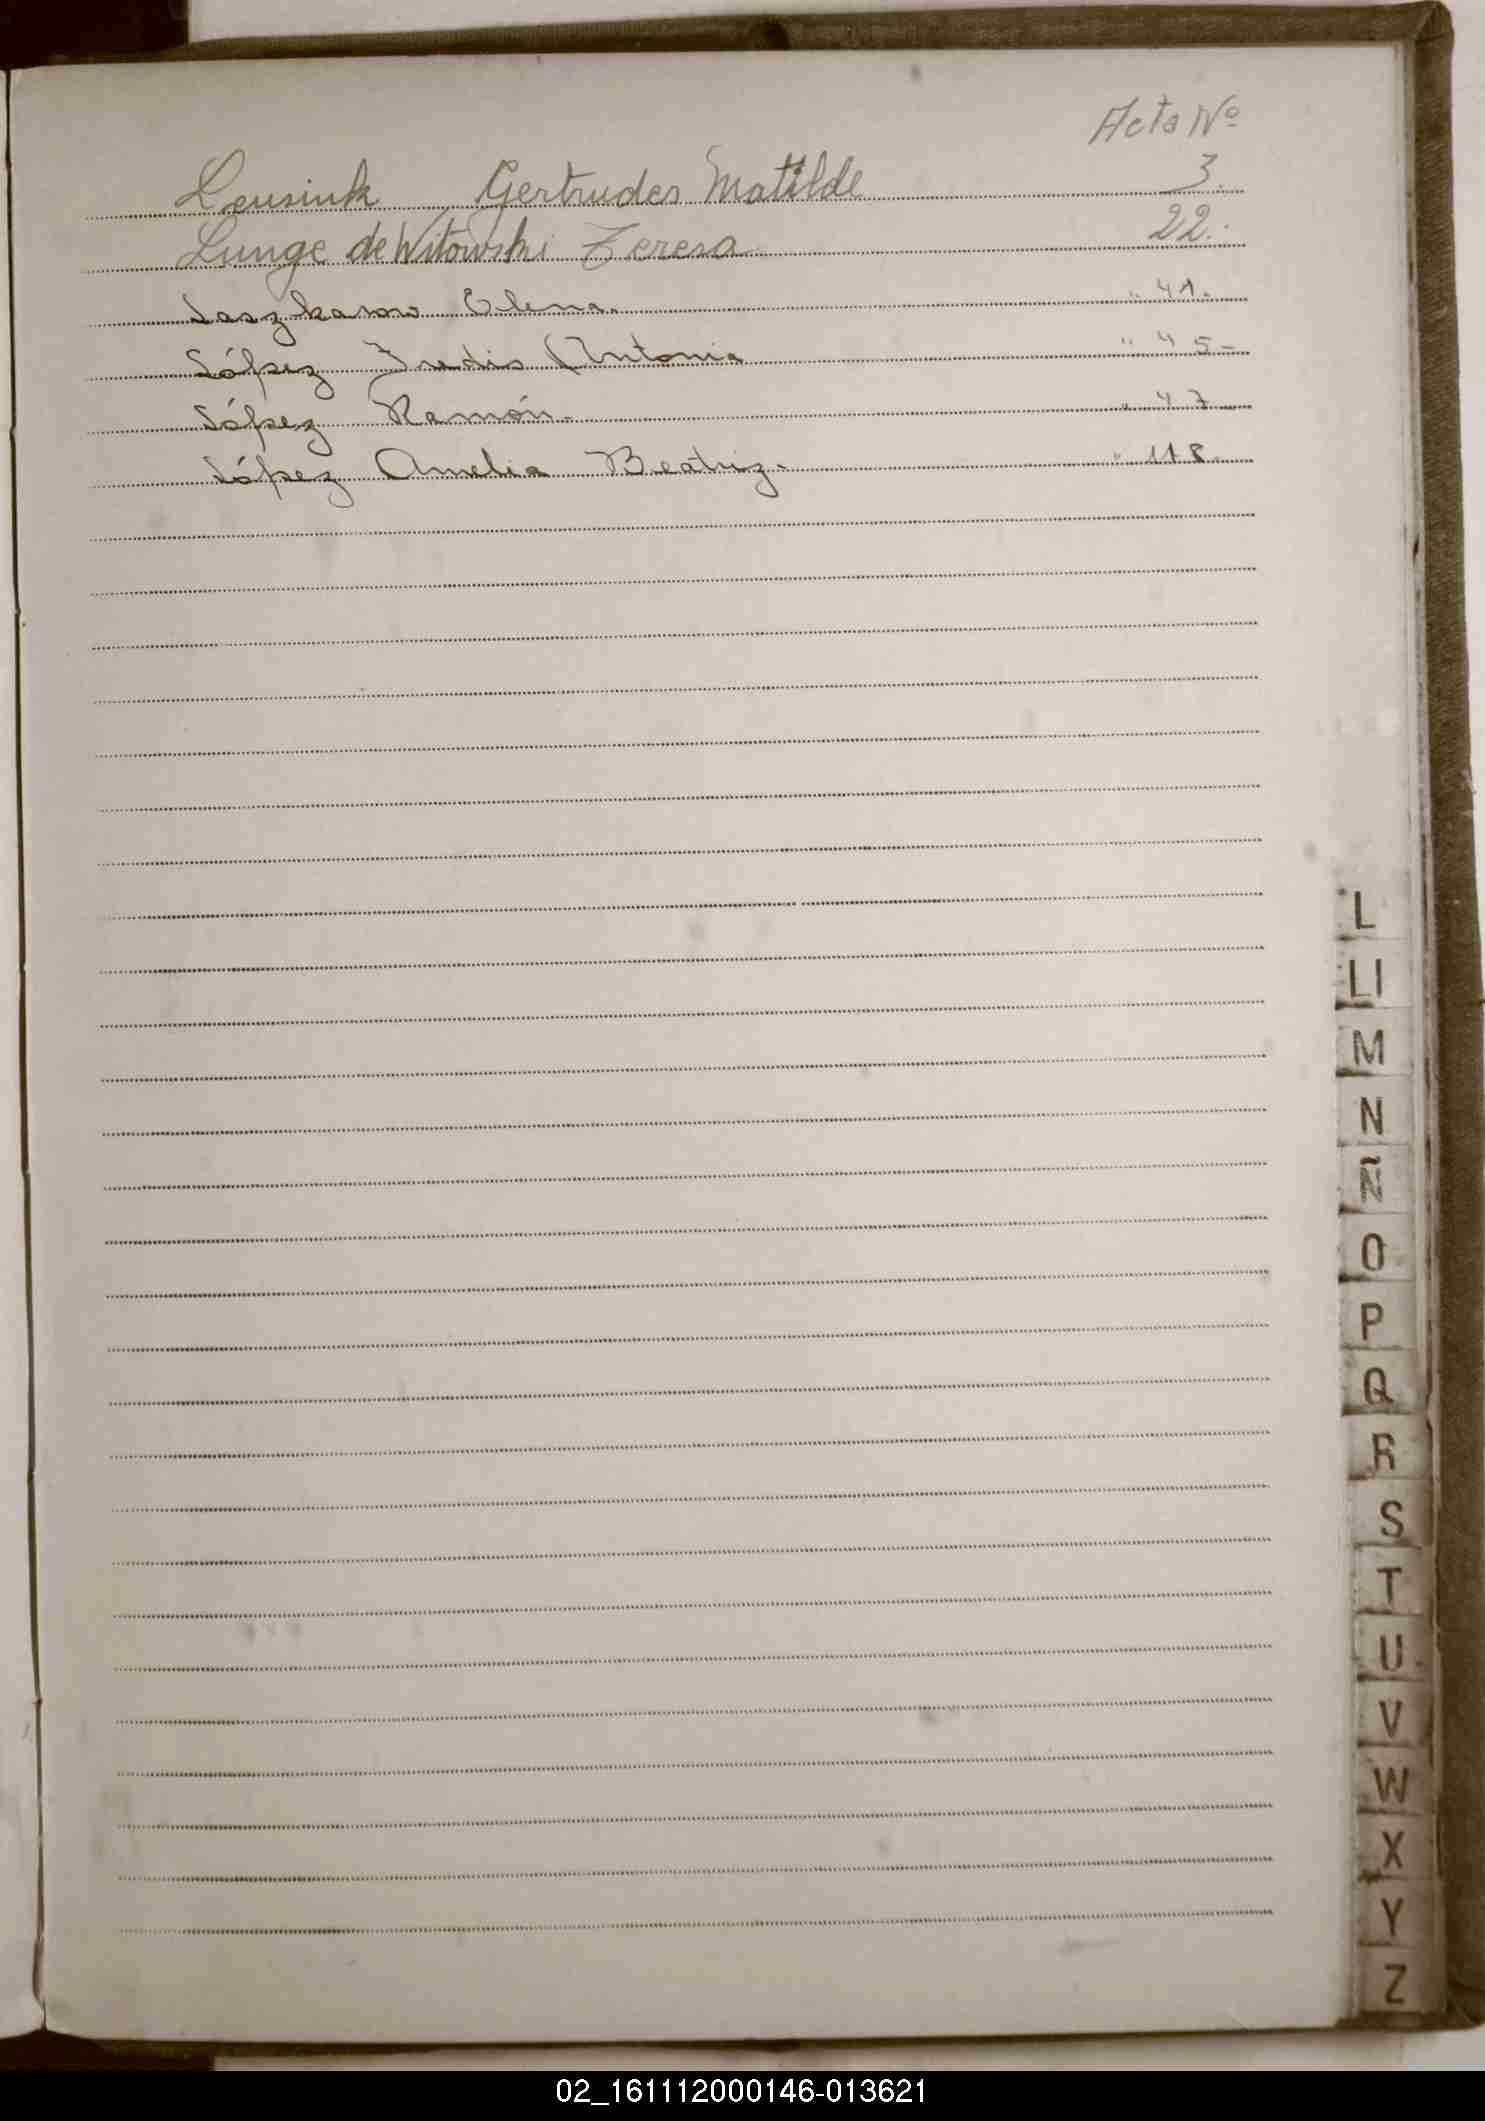 Acta Nº
Leusink Gertrudes Matilde 3.
Lunge de Witowski Teresa 22.
Laszkanow Elena. " 41.
López Antonia " 45-
López Ramón. " 47
López Amelia Beatriz. " 118.
L
Ll
M
N
Ñ
O
P
Q
R
S
T
U
V
W
X
Y
Z
02_161112000146-013621